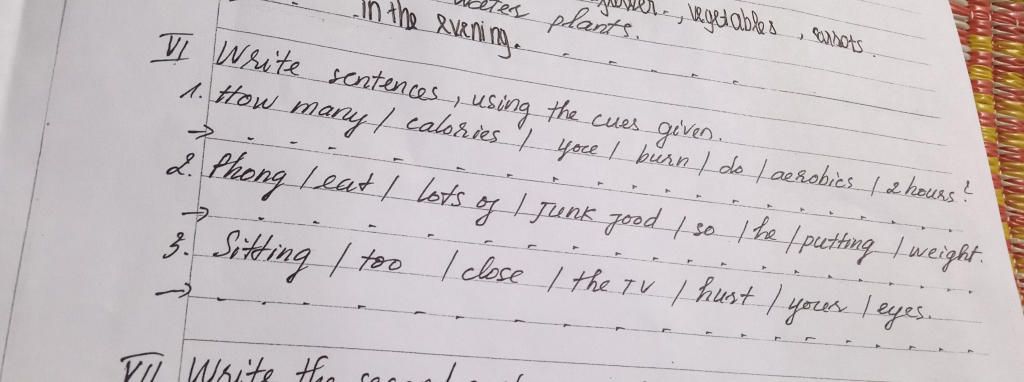 plants. , vegetables ,
in the evening.
VI Write sentences, using the cues given.
1. How many / calories / you / burn / do / aerobics / 2 hours?
→
2. Phong / eat / lots of / Junk food / so / he / putting / weight.
→
3. Sitting / too / close / the TV / hurt / your / eyes.
→
VII Write the